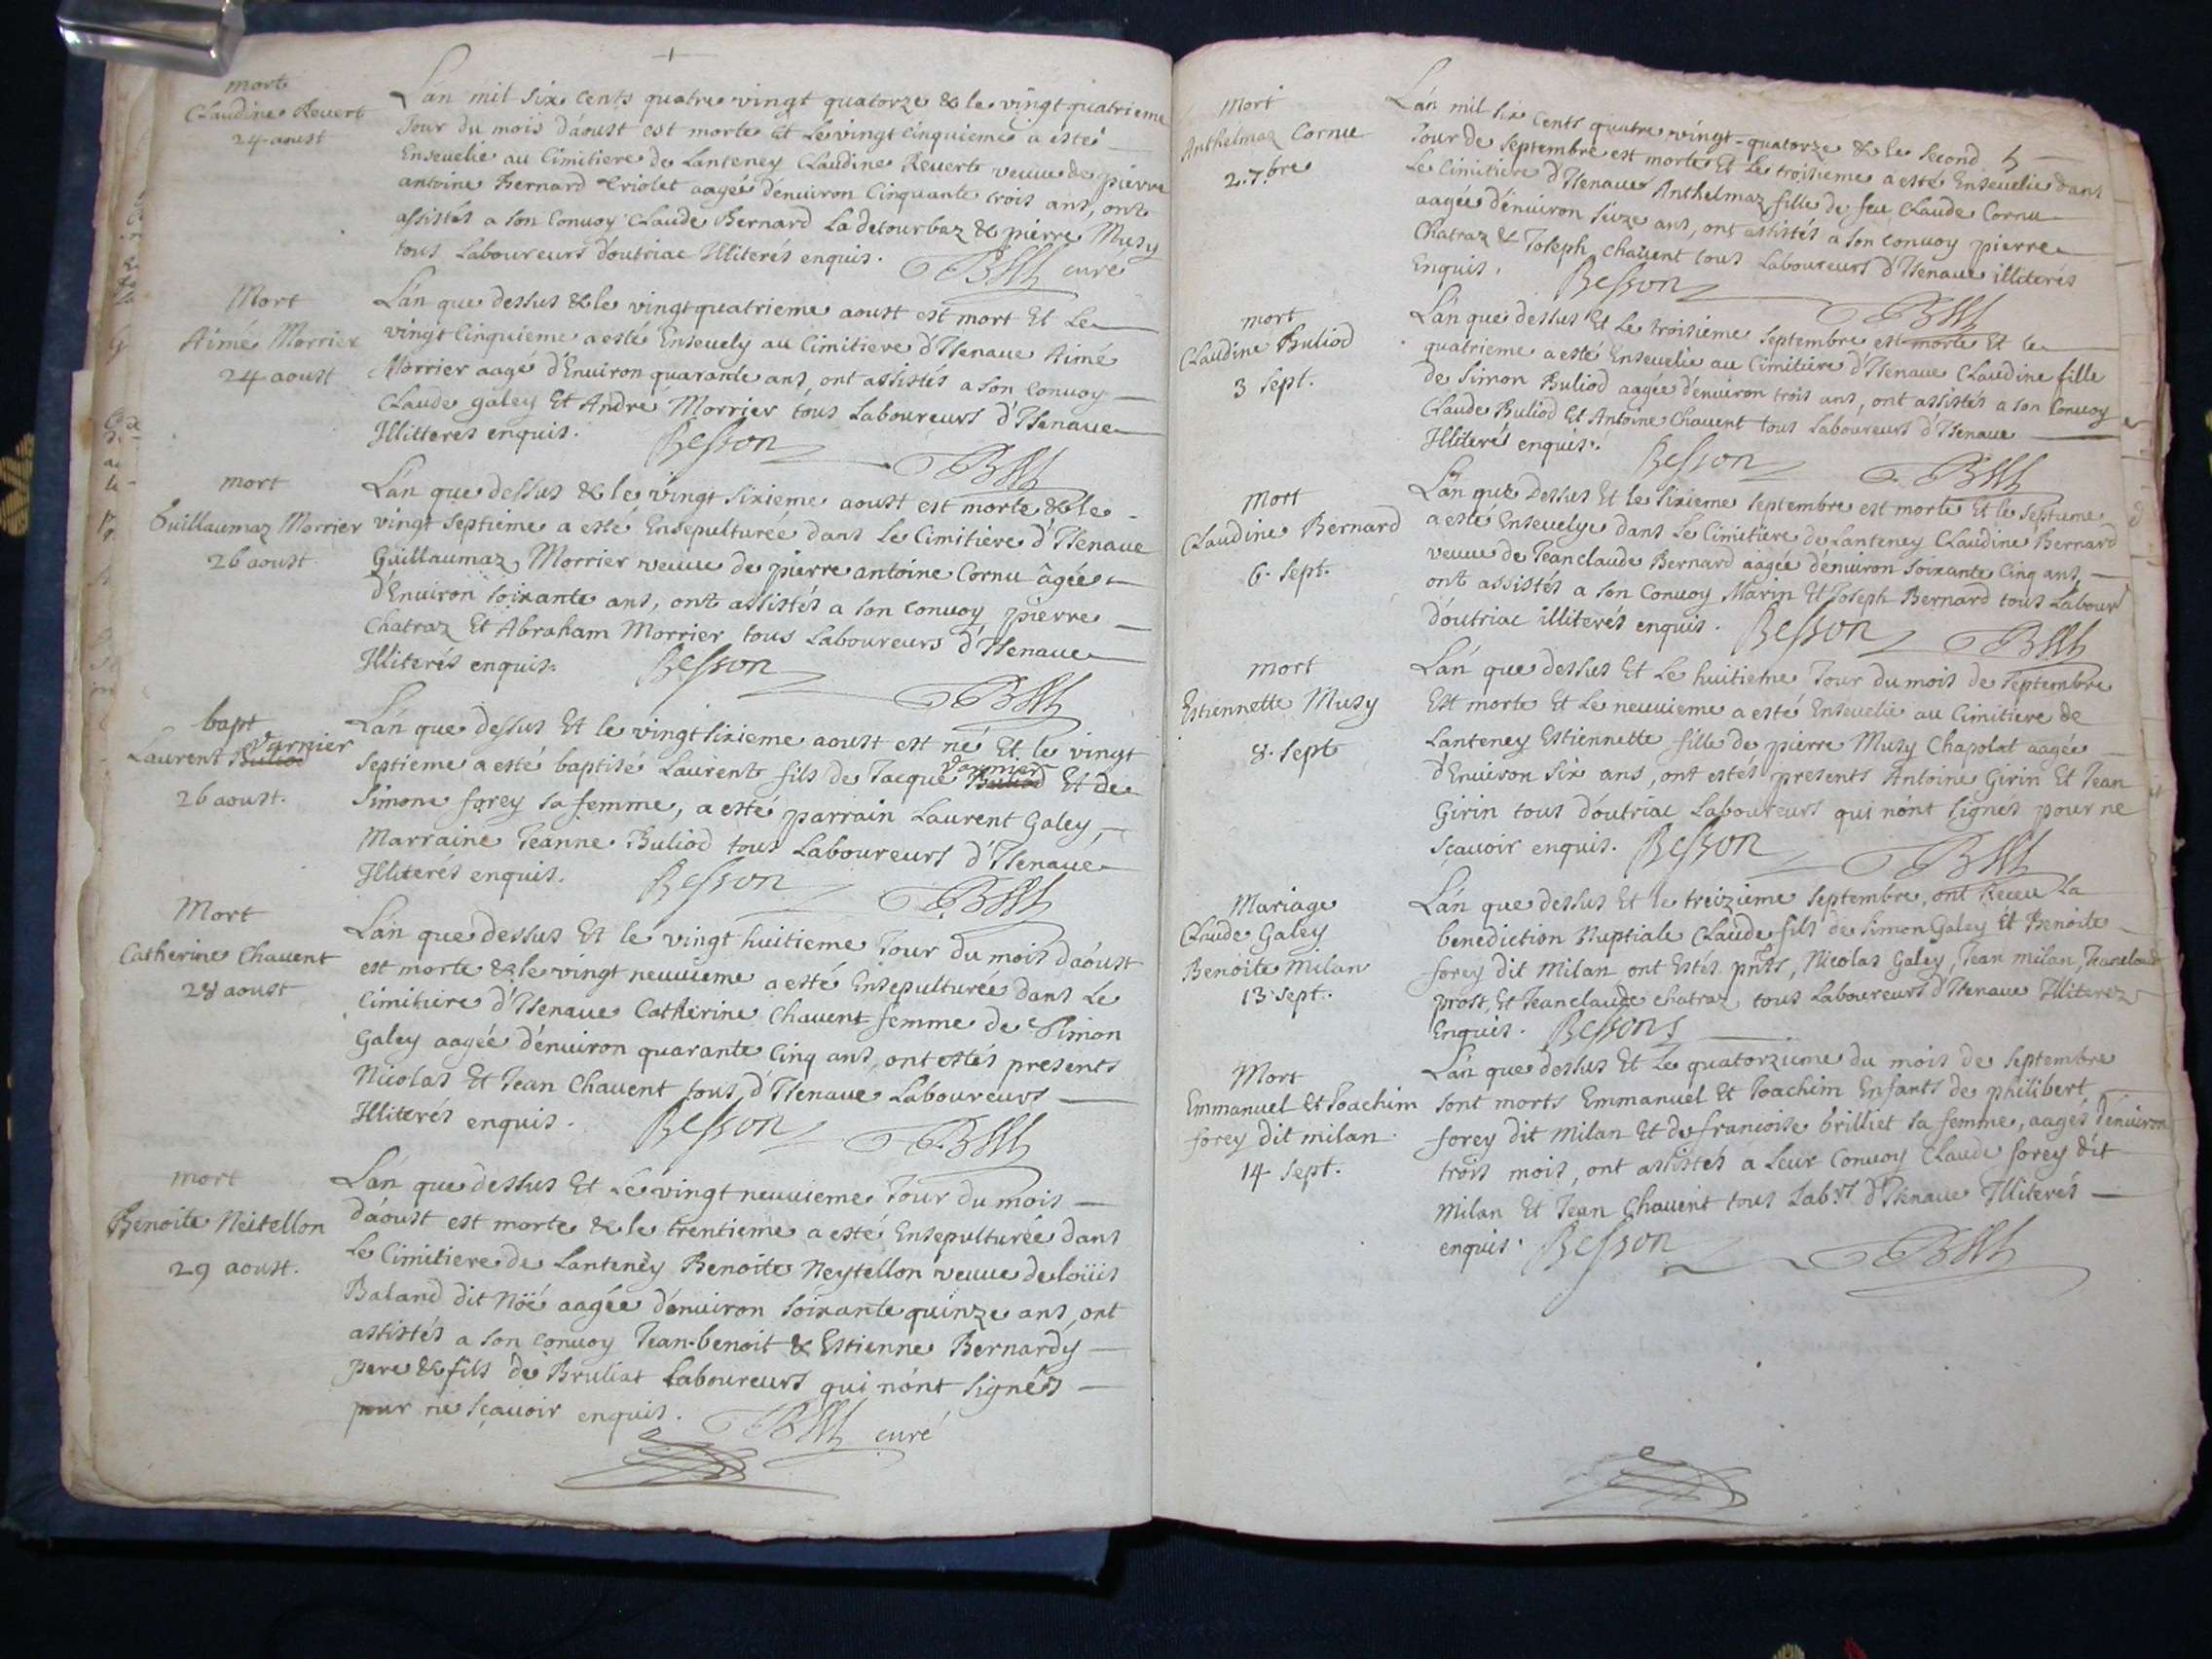 morte
Claudine Reuert
24 aoust
L'an mil six cents quatre vingt quatorze & le vingt quatrieme
Jour du mois d'aoust est morte Et Le vingt cinquieme a esté
Enseuelie au Cimitiere de Lanteney Claudine Reuert veuue de pierre
antoine Bernard aagée d'enuiron Cinquante trois ans, ont
assistés a son Conuoy Claude Bernard La detourbaz & pierre Musy
tous Laboureurs d'outriac Illiterés enquis. curé
Mort
Aimé Morrier
24 aoust
L'an que dessus & le vingt quatrieme aoust est mort Et Le
vingt Cinquieme a esté Enseuely au Cimitiere d'Isenaue Aimé
Morrier aagé d'Enuiron quarante ans, ont assistés a son Conuoy
Claude galey Et André Morrier tous Laboureurs d'Isenaue
Illitterés enquis. Besson
mort
Guillaumaz Morrier
26 aoust
L'an que dessus & le vingt sixieme aoust est morte & le
vingt septieme a esté Ensepulturée dans Le Cimitiere d'Isenaue
Guillaumaz Morrier veuue de pierre antoine Cornu âgée
d'Enuiron soixante ans, ont assistés a son Conuoy pierre
Chatraz Et Abraham Morrier tous Laboureurs d'Isenaue
Illiterés enquis. Besson
bapt
Varnier
Laurent Buliod
26 aoust.
L'an que dessus Et le vingt sixieme aoust est né Et le vingt
Varnier
septieme a esté baptisé Laurent fils de Jacque Buliod Et de
Simone forey sa femme, a esté parrain Laurent Galey,
Marraine Jeanne Buliod tous Laboureurs d'Isenaue
Illiterés enquis. Besson
Mort
Catherine Chauent
28 aoust
L'an que dessus Et le vingt huitieme Jour du mois d'aoust
est morte & le vingt neuuieme a esté Ensepulturée dans Le
Cimitiere d'Isenaue Catherine Chauent femme de Simon
Galey aagée d'enuiron quarante Cinq ans, ont estés presents
Nicolas Et Jean Chauent tous d'Isenaue Laboureurs
Illiterés enquis. Besson
mort
Benoite Neitellon
29 aoust.
L'an que dessus Et Le vingt neuuieme Jour du mois
d'aoust est morte & le trentieme a esté Ensepulturée dans
Le Cimitiere de Lanteney Benoite Neytellon veuue de loüis
Baland dit Nöé aagée d'enuiron soixante quinze ans, ont
assistés a son Conuoy Jean-benoit & Estienne Bernardy
pere & fils de Bruliat Laboureurs qui n'ont signés
pour ne sçauoir enquis. curé
Mort
Anthelmaz Cornu
2. 7.bre
L'an mil six cents quatre vingt-quatorze & le second
Jour de septembre est morte Et Le troisieme a esté Enseuelie dans
Le Cimitiere d'Isenaue Anthelmaz fille de feu Claude Cornu
aagée d'enuiron seize ans, ont assistés a son conuoy pierre
Chatraz & Joseph Chauent tous Laboureurs d'Isenaue illiterés
Enquis. Besson
mort
Claudine Buliod
3 sept.
L'an que dessus Et Le troisieme septembre est morte Et le
quatrieme a esté Enseuelie au Cimitiere d'Isenaue Claudine fille
de Simon Buliod aagée d'enuiron trois ans, ont assistés a son Conuoy
Claude Buliod Et Antoine Chauent tous Laboureurs d'Isenaue
Illiterés enquis. Besson
Mort
Claudine Bernard
6. sept.
L'an que Dessus Et le sixieme septembre est morte Et le septieme
a esté Enseuelye dans Le Cimitiere de Lanteney Claudine Bernard
veuue de Jeanclaude Bernard aagée d'enuiron soixante Cinq ans,
ont assistés a son Conuoy Marin Et Joseph Bernard tous Labour
d'outriac illiterés enquis. Besson
mort
Estiennette Musy
8. sept
L'an que dessus Et Le huitieme Jour du mois de septembre
Est morte Et Le neuuieme a esté Enseuelie au Cimitiere de
Lanteney Estiennette fille de pierre Musy Chapolat aagée
d'Enuiron six ans, ont estés presents Antoine Girin Et Jean
Girin tous d'outriac Laboureurs qui n'ont signes pour ne
sçauoir enquis. Besson
Mariage
Claude Galey
Benoite Milan
13 sept.
L'an que dessus Et le treizieme septembre, ont Receu La
benediction Nuptiale Claude fils de Simon Galey Et Benoite
forey dit Milan ont Estés pnts, Nicolas Galey, Jean milan, Jeanclaude
prost, Et Jeanclaude Chatraz tous Laboureurs d'Isenaue Illiterez
Enquis. Besson
Mort
Emmanuel Et Joachim
forey dit milan
14 sept.
L'an que dessus Et Le quatorzieme du mois de septembre
sont morts Emmanuel Et Joachim Enfants de philibert
forey dit Milan Et de francoise brilliet sa femme, aagés d'enuiron
trois mois, ont assistés a Leur Conuoy Claude forey dit
Milan Et Jean Chauent tous Lab.rs d'Isenaue Illiterés
enquis. Besson